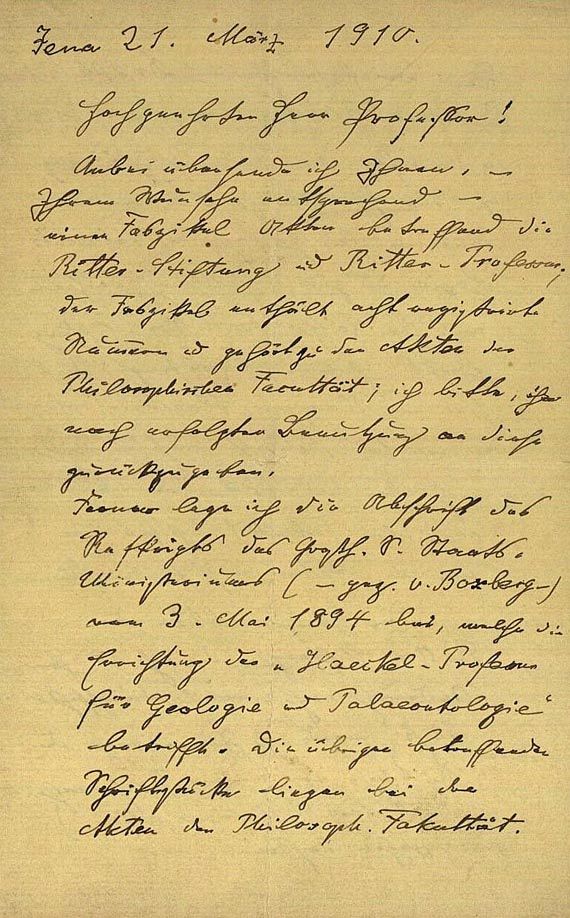 Jena 21. März 1910.
Hochgeehrter Herr Professor!
Anbei übersende ich Ihnen, –
Ihrem Wunsche entsprechend –
einen Faszikel Akten betreffend die
Ritter-Stiftung und Ritter-Professur;
der Faszikel enthält acht registrirte
Nummern u gehört zu den Akten der
Philosophischen Facultät; ich bitte, ihn
nach erfolgter Benutzung an diese
zurückzugeben.
Ferner lege ich die Abschrift des
Reskripts des Großh. S. Staats-
Ministeriums (– gez. v. Boxberg –)
vom 3. Mai 1894 bei, welche die
Errichtung der „Haeckel-Professur
für Geologie und Palaeontologie“
betrifft. Die übrigen betreffenden
Schriftstücke liegen bei den
Akten der Philosoph. Fakultät.